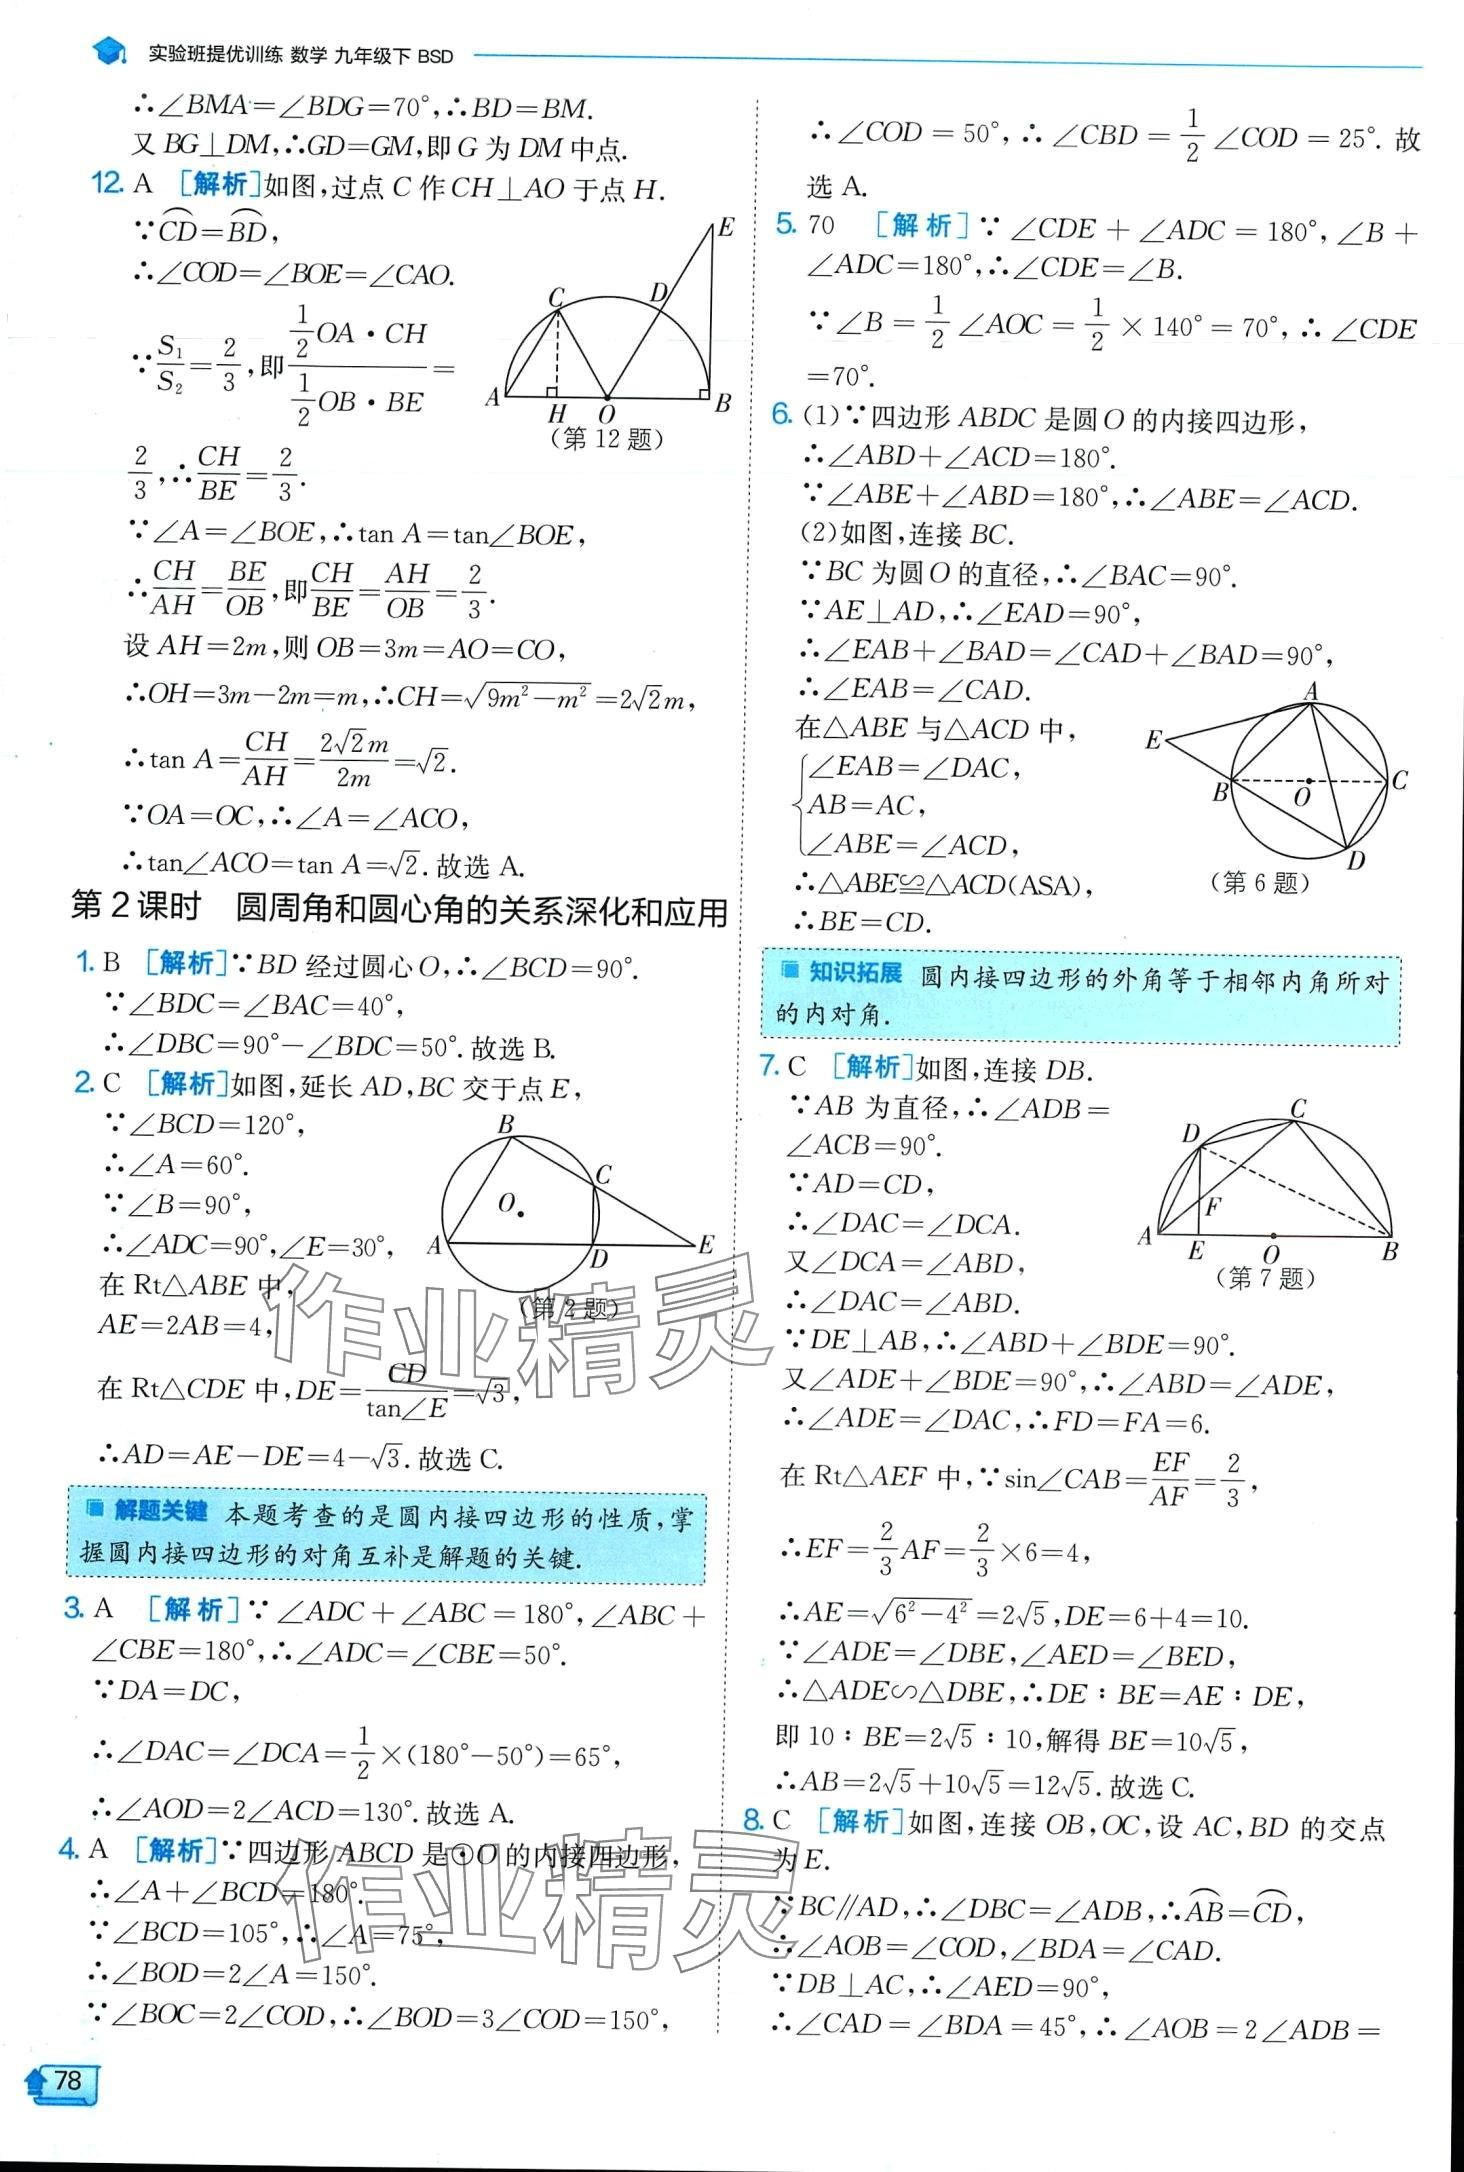 实验班提优训练 数学 九年级下 BSD
∴∠BMA=∠BDG=70°,∴BD=BM.
又 BG⊥DM,∴GD=GM,即 G 为 DM 中点.
12. A [解析]如图,过点 C 作 CH⊥AO 于点 H.
∵⌒CD=⌒BD,
∴∠COD=∠BOE=∠CAO.
∵S₁/S₂=2/3,即 (1/2 OA·CH)/(1/2 OB·BE)=
2/3,∴CH/BE=2/3.
∵∠A=∠BOE,∴tan A=tan∠BOE,
∴CH/AH=BE/OB,即CH/BE=AH/OB=2/3.
设 AH=2m,则 OB=3m=AO=CO,
∴OH=3m-2m=m,∴CH=√(9m²-m²)=2√2m,
∴tan A=CH/AH=2√2m/2m=√2.
∵OA=OC,∴∠A=∠ACO,
∴tan∠ACO=tan A=√2.故选 A.
E
C
D
A
H
O
B
(第 12 题)
第 2 课时 圆周角和圆心角的关系深化和应用
1. B [解析]∵BD 经过圆心 O,∴∠BCD=90°.
∵∠BDC=∠BAC=40°,
∴∠DBC=90°-∠BDC=50°.故选 B.
2. C [解析]如图,延长 AD,BC 交于点 E,
∵∠BCD=120°,
∴∠A=60°.
∵∠B=90°,
∴∠ADC=90°,∠E=30°,
在 Rt△ABE 中,
AE=2AB=4,
在 Rt△CDE 中,DE=CD/tan∠E=√3,
∴AD=AE-DE=4-√3.故选 C.
B
C
O
A
D
E
(第 2 题)
解题关键 本题考查的是圆内接四边形的性质,掌
握圆内接四边形的对角互补是解题的关键.
3. A [解析]∵∠ADC+∠ABC=180°,∠ABC+
∠CBE=180°,∴∠ADC=∠CBE=50°.
∵DA=DC,
∴∠DAC=∠DCA=1/2×(180°-50°)=65°,
∴∠AOD=2∠ACD=130°.故选 A.
4. A [解析]∵四边形 ABCD 是⊙O 的内接四边形,
∴∠A+∠BCD=180°.
∵∠BCD=105°,∴∠A=75°,
∴∠BOD=2∠A=150°.
∵∠BOC=2∠COD,∴∠BOD=3∠COD=150°,
∴∠COD=50°,∴∠CBD=1/2∠COD=25°.故
选 A.
5. 70 [解析]∵∠CDE+∠ADC=180°,∠B+
∠ADC=180°,∴∠CDE=∠B.
∵∠B=1/2∠AOC=1/2×140°=70°,∴∠CDE
=70°.
6. (1)∵四边形 ABDC 是圆 O 的内接四边形,
∴∠ABD+∠ACD=180°.
∵∠ABE+∠ABD=180°,∴∠ABE=∠ACD.
(2)如图,连接 BC.
∵BC 为圆 O 的直径,∴∠BAC=90°.
∵AE⊥AD,∴∠EAD=90°,
∴∠EAB+∠BAD=∠CAD+∠BAD=90°,
∴∠EAB=∠CAD.
在△ABE 与△ACD 中,
{∠EAB=∠DAC,
AB=AC,
∠ABE=∠ACD,
∴△ABE≌△ACD(ASA),
∴BE=CD.
A
E
B
O
C
D
(第 6 题)
知识拓展 圆内接四边形的外角等于相邻内角所对
的内对角.
7. C [解析]如图,连接 DB.
∵AB 为直径,∴∠ADB=
∠ACB=90°.
∵AD=CD,
∴∠DAC=∠DCA.
又∠DCA=∠ABD,
∴∠DAC=∠ABD.
∵DE⊥AB,∴∠ABD+∠BDE=90°.
又∠ADE+∠BDE=90°,∴∠ABD=∠ADE,
∴∠ADE=∠DAC,∴FD=FA=6.
在 Rt△AEF 中,∵sin∠CAB=EF/AF=2/3,
∴EF=2/3AF=2/3×6=4,
∴AE=√(6²-4²)=2√5,DE=6+4=10.
∵∠ADE=∠DBE,∠AED=∠BED,
∴△ADE∽△DBE,∴DE∶BE=AE∶DE,
即 10∶BE=2√5∶10,解得 BE=10√5,
∴AB=2√5+10√5=12√5.故选 C.
C
D
F
A
E
O
B
(第 7 题)
8. C [解析]如图,连接 OB,OC,设 AC,BD 的交点
为 E.
∵BC∥AD,∴∠DBC=∠ADB,∴⌒AB=⌒CD,
∴∠AOB=∠COD,∠BDA=∠CAD.
∵DB⊥AC,∴∠AED=90°,
∴∠CAD=∠BDA=45°,∴∠AOB=2∠ADB=
78
作业精灵
作业精灵